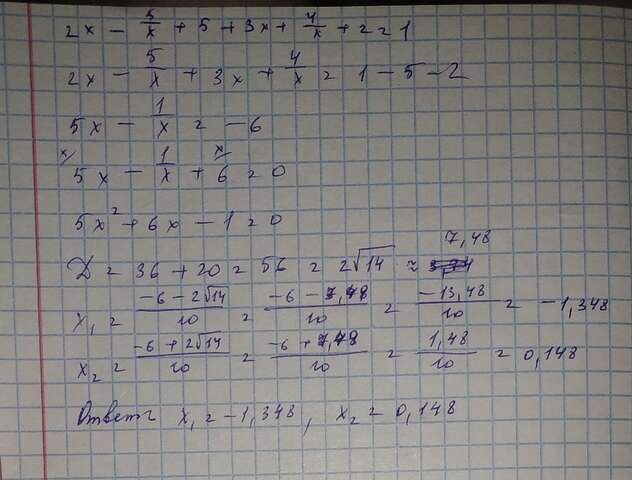 2x - 5/x + 5 + 3x + 4/x + 2 = 1
2x - 5/x + 3x + 4/x = 1 - 5 - 2
5x - 1/x = -6
x/ 5x - 1/x + x/ 6 = 0
5x² + 6x - 1 = 0
7,48
D = 36 + 20 = 56 = 2√14 ≈
x₁ = (-6 - 2√14)/10 = (-6 - 7,48)/10 = (-13,48)/10 = -1,348
x₂ = (-6 + 2√14)/10 = (-6 + 7,48)/10 = 1,48/10 = 0,148
Ответ: x₁ = -1,348, x₂ = 0,148